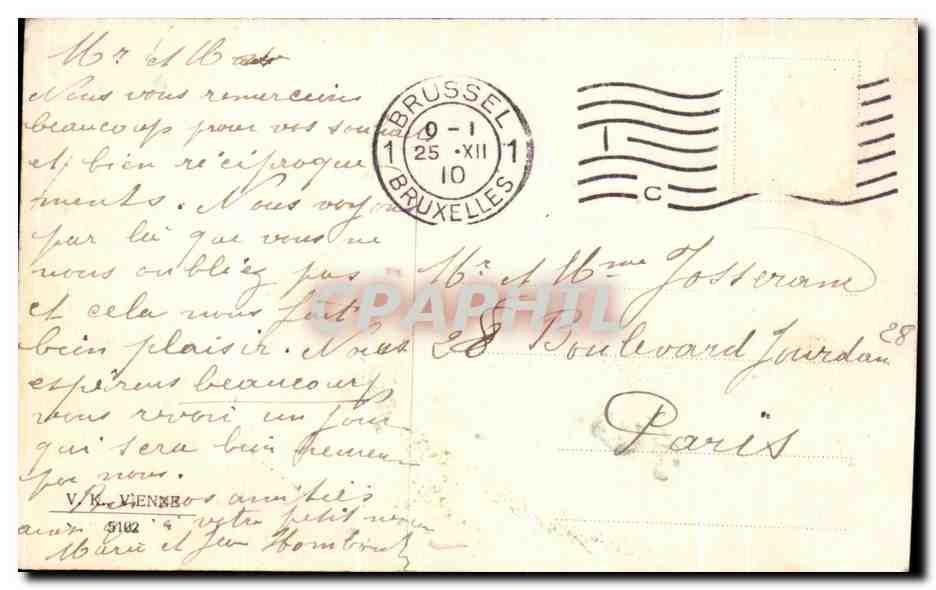 Mr et M
Nous vous remercions
beaucoup pour vos souhaits
et bien réciproque
ments. Nous voyons
par là que vous ne
nous oubliez pas
et cela nous fait
bien plaisir. Nous
espérons beaucoup
vous revoir un jour
qui sera bien heureux
par nous.
nos amitiés
votre petit
Marie et Jean
V. K. VIENNE
5102
BRUSSEL
0 - 1
1 25 •XII 1
10
BRUXELLES
1
C
Mr et Mme Josserand
28 Boulevard Jourdan 28
Paris
CPAPHIL